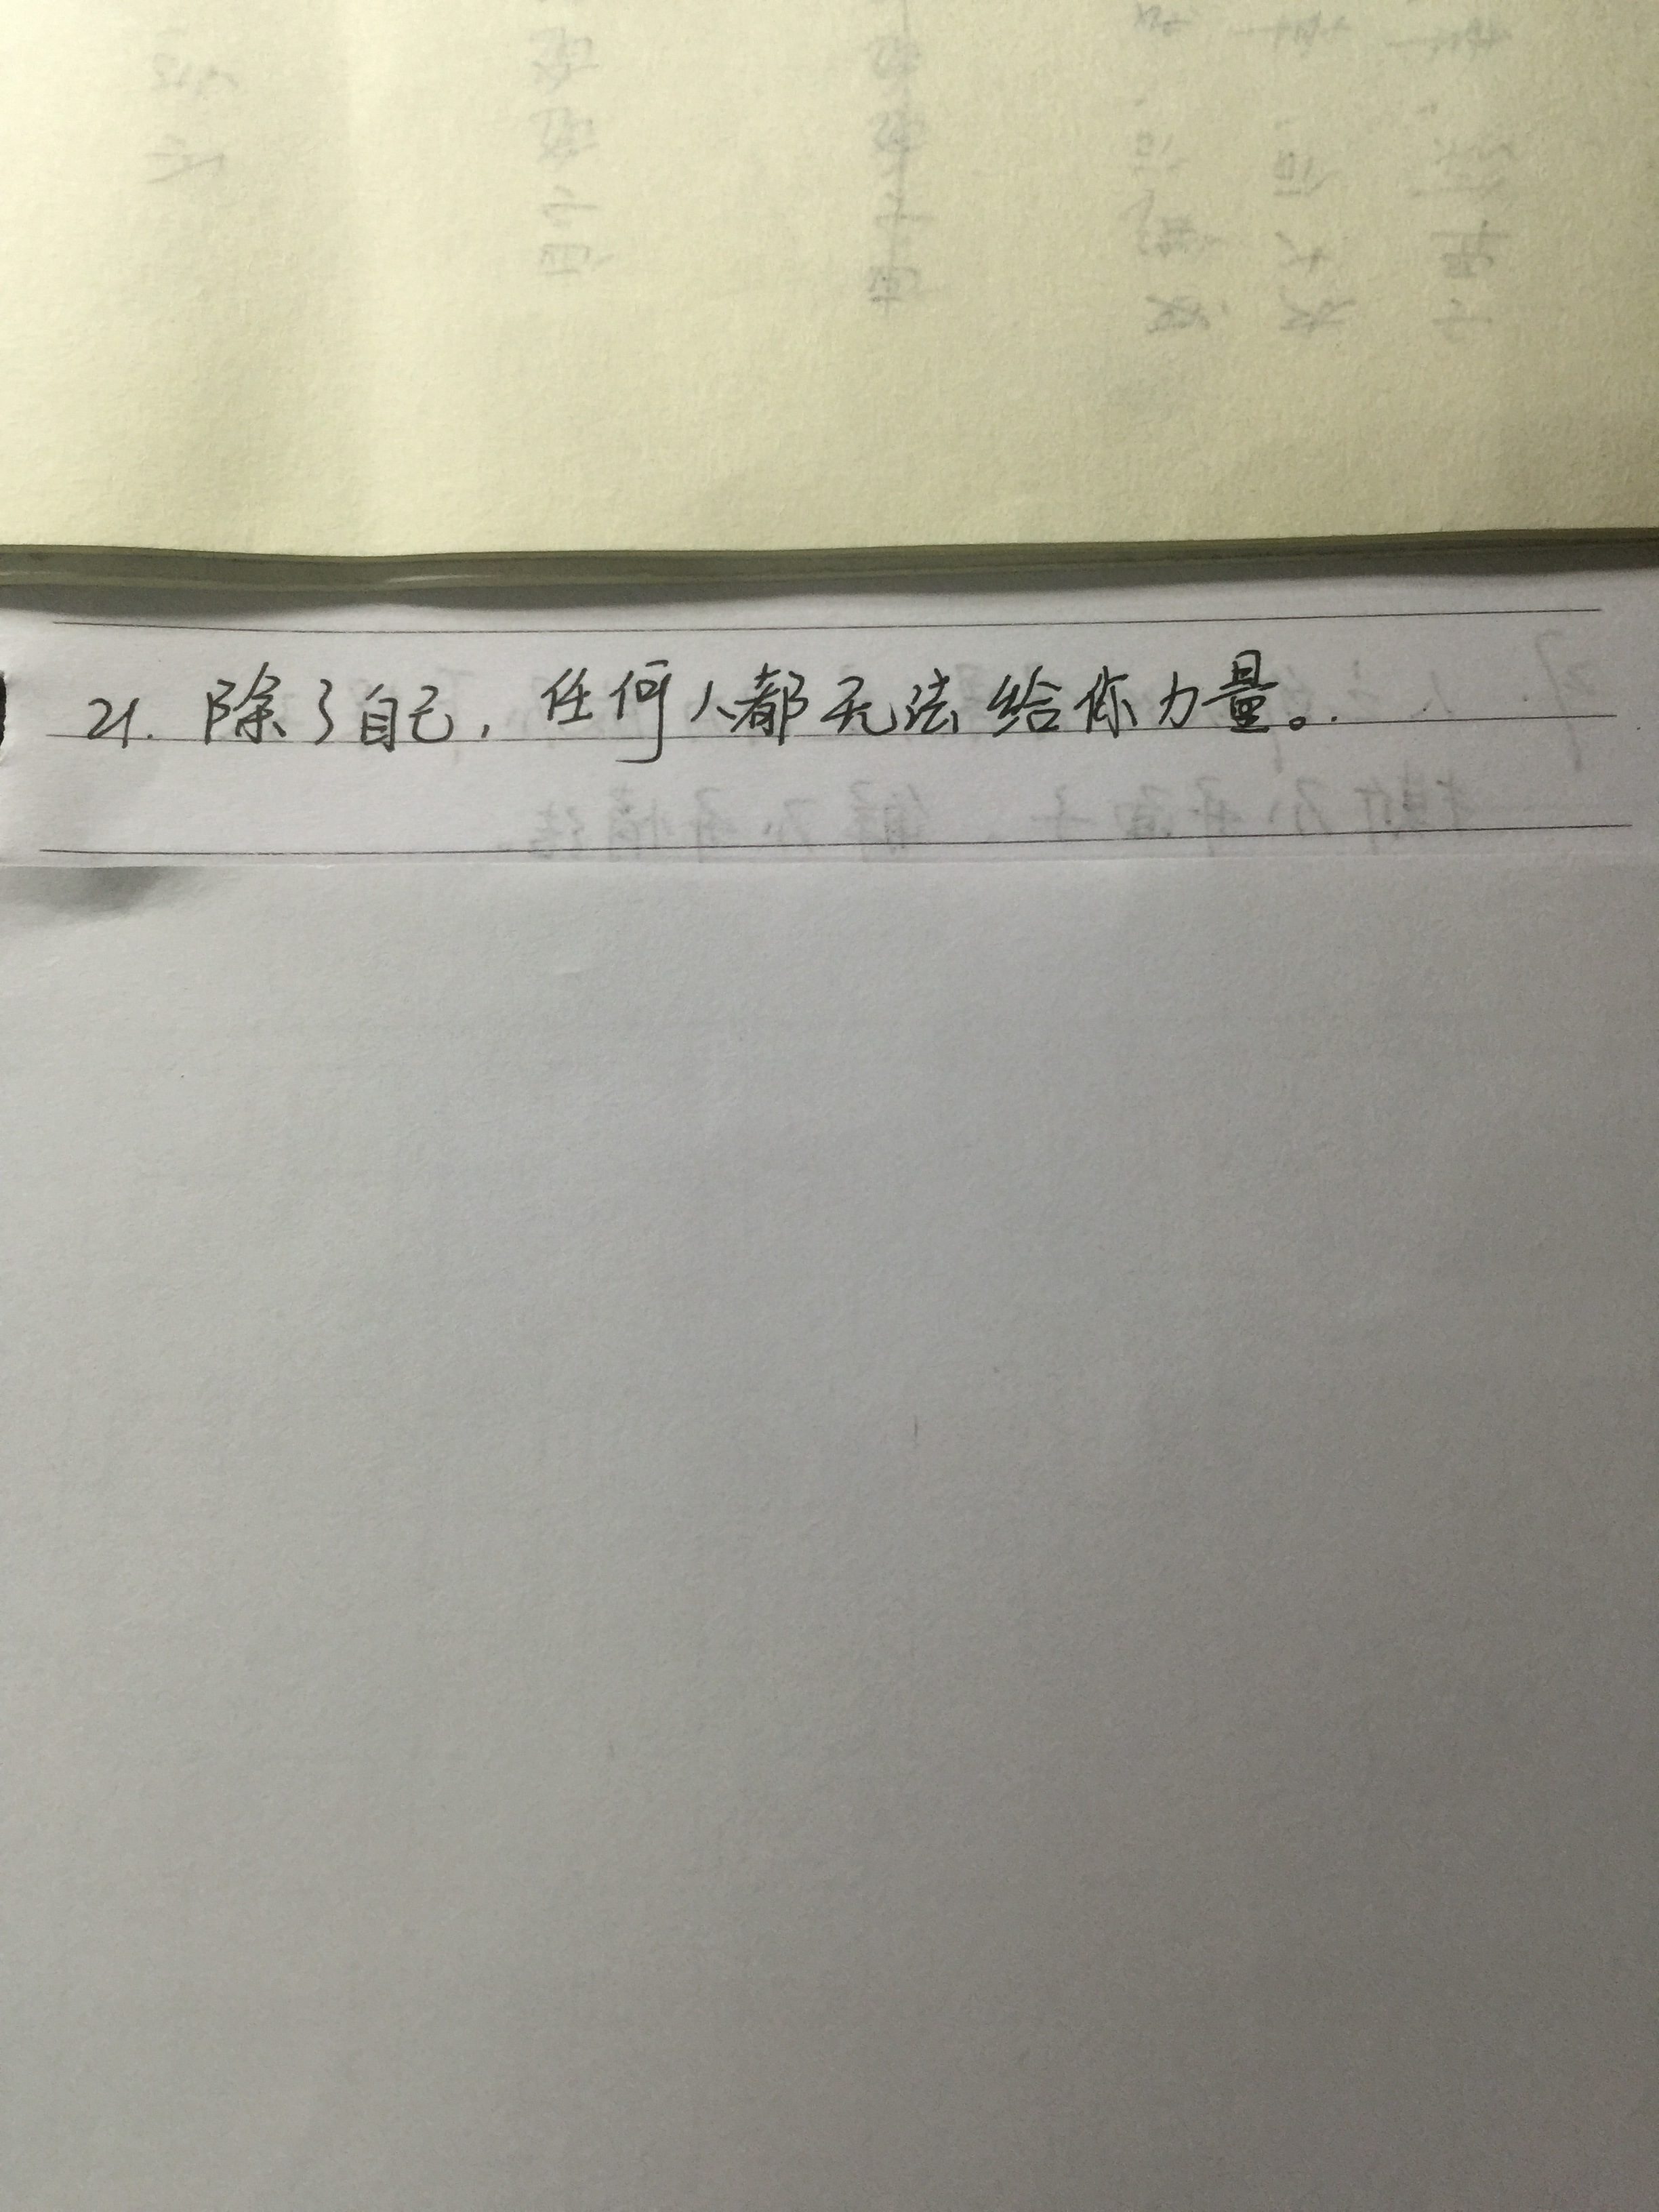 21. 除了自己，任何人都无法给你力量。